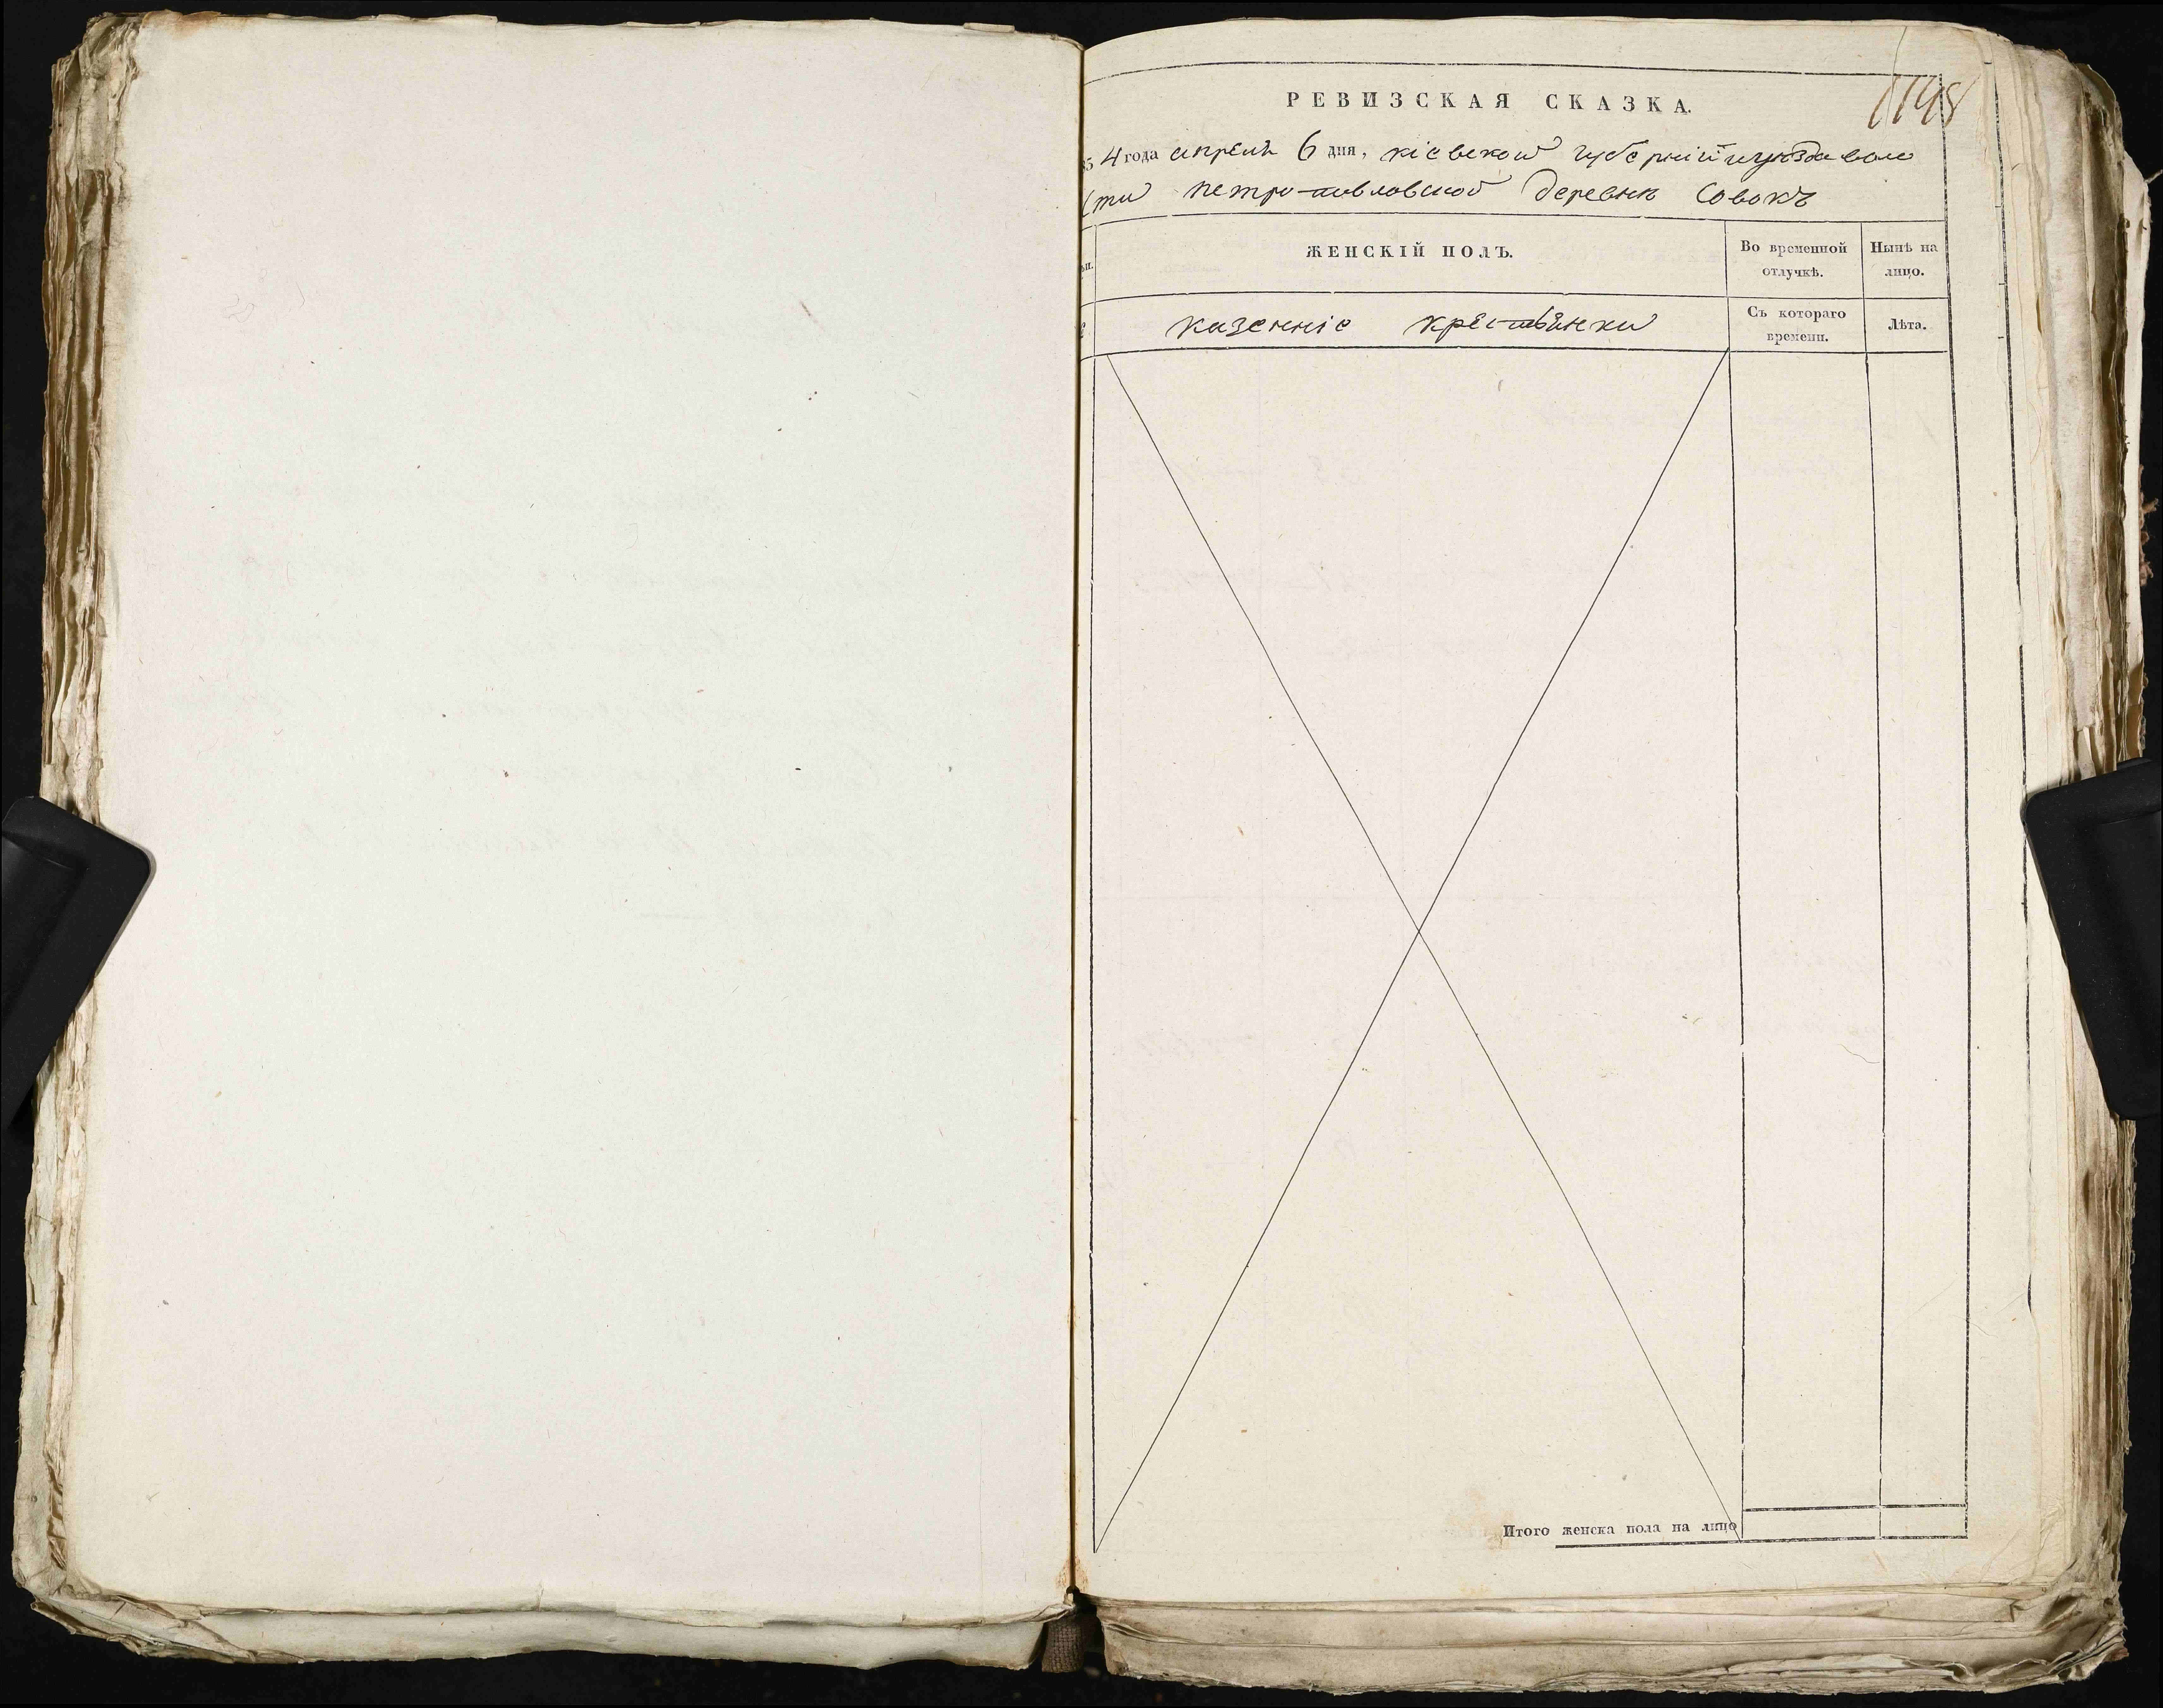 РЕВИЗСКАЯ СКАЗКА.
1198
4 года апреля 6 дня, кіевской губерніи и уезда воло
сти петро-павловской деревни Совокъ
ЖЕНСКІЙ ПОЛЪ.
Во временной отлучкѣ.
Нынѣ на лицо.
казенніе крестьянки
Съ котораго времени.
Лѣта.
Итого женска пола на лицо